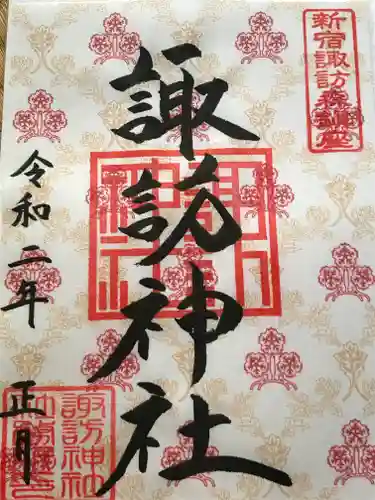 新宿諏訪森鎮座
諏訪神社
令和二年
正月
諏訪神社